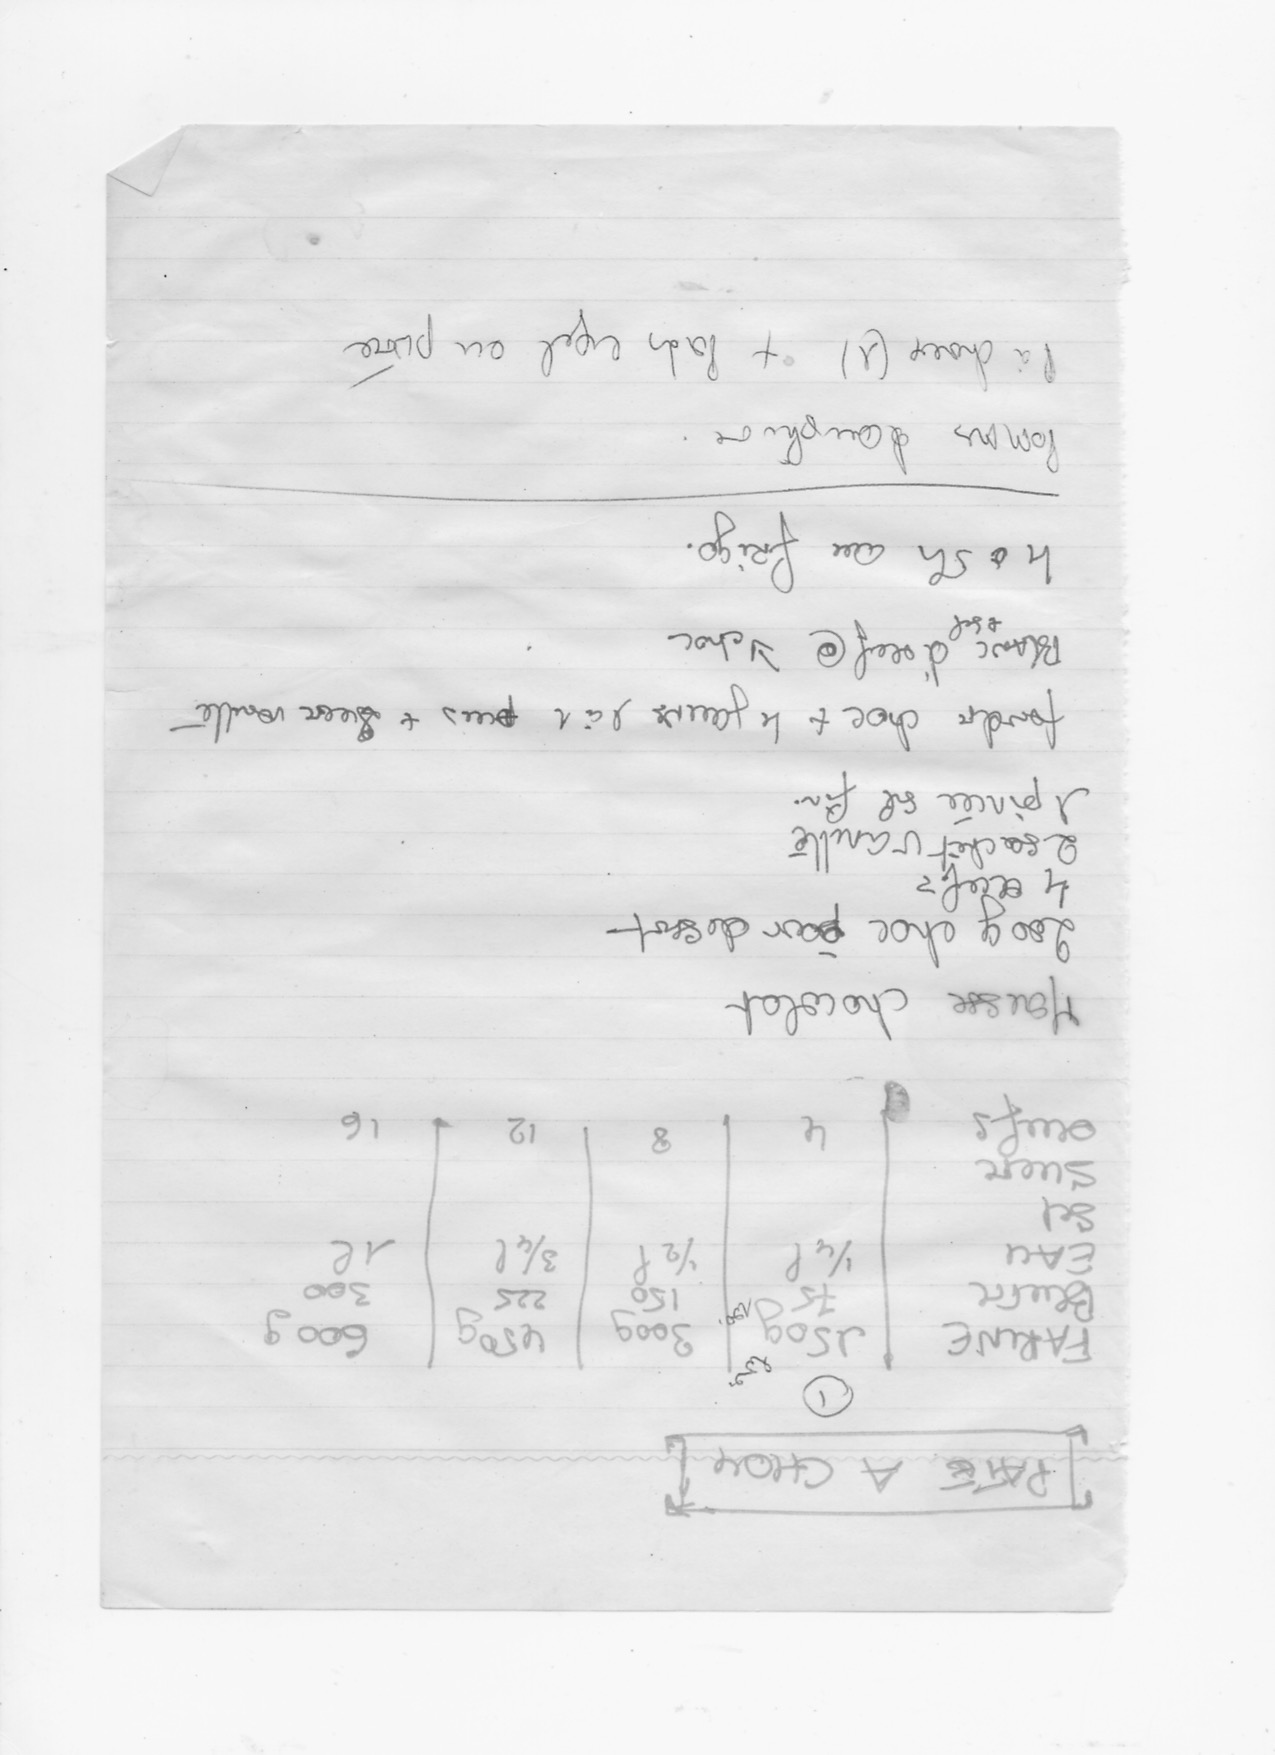 PATE A CHOU
1
FARINE 150g 300g 450g 600g
Beurre 75g 150 225 300
EAU 1/4 l 1/2 l 3/4 l 1l
Sel
Sucre
Oeufs 4 8 12 16
Mousse chocolat
200g choc pour dessert
4 oeufs
2 sachet vanille
1 pincée sel fin.
fondre choc + 4 jaunes 1 à 1 puis + sucre vanillé
Blanc d'oeuf + sel choc
4 a 5h au frigo.
Pommes dauphine.
Pa choux (1) + poids égal en purée